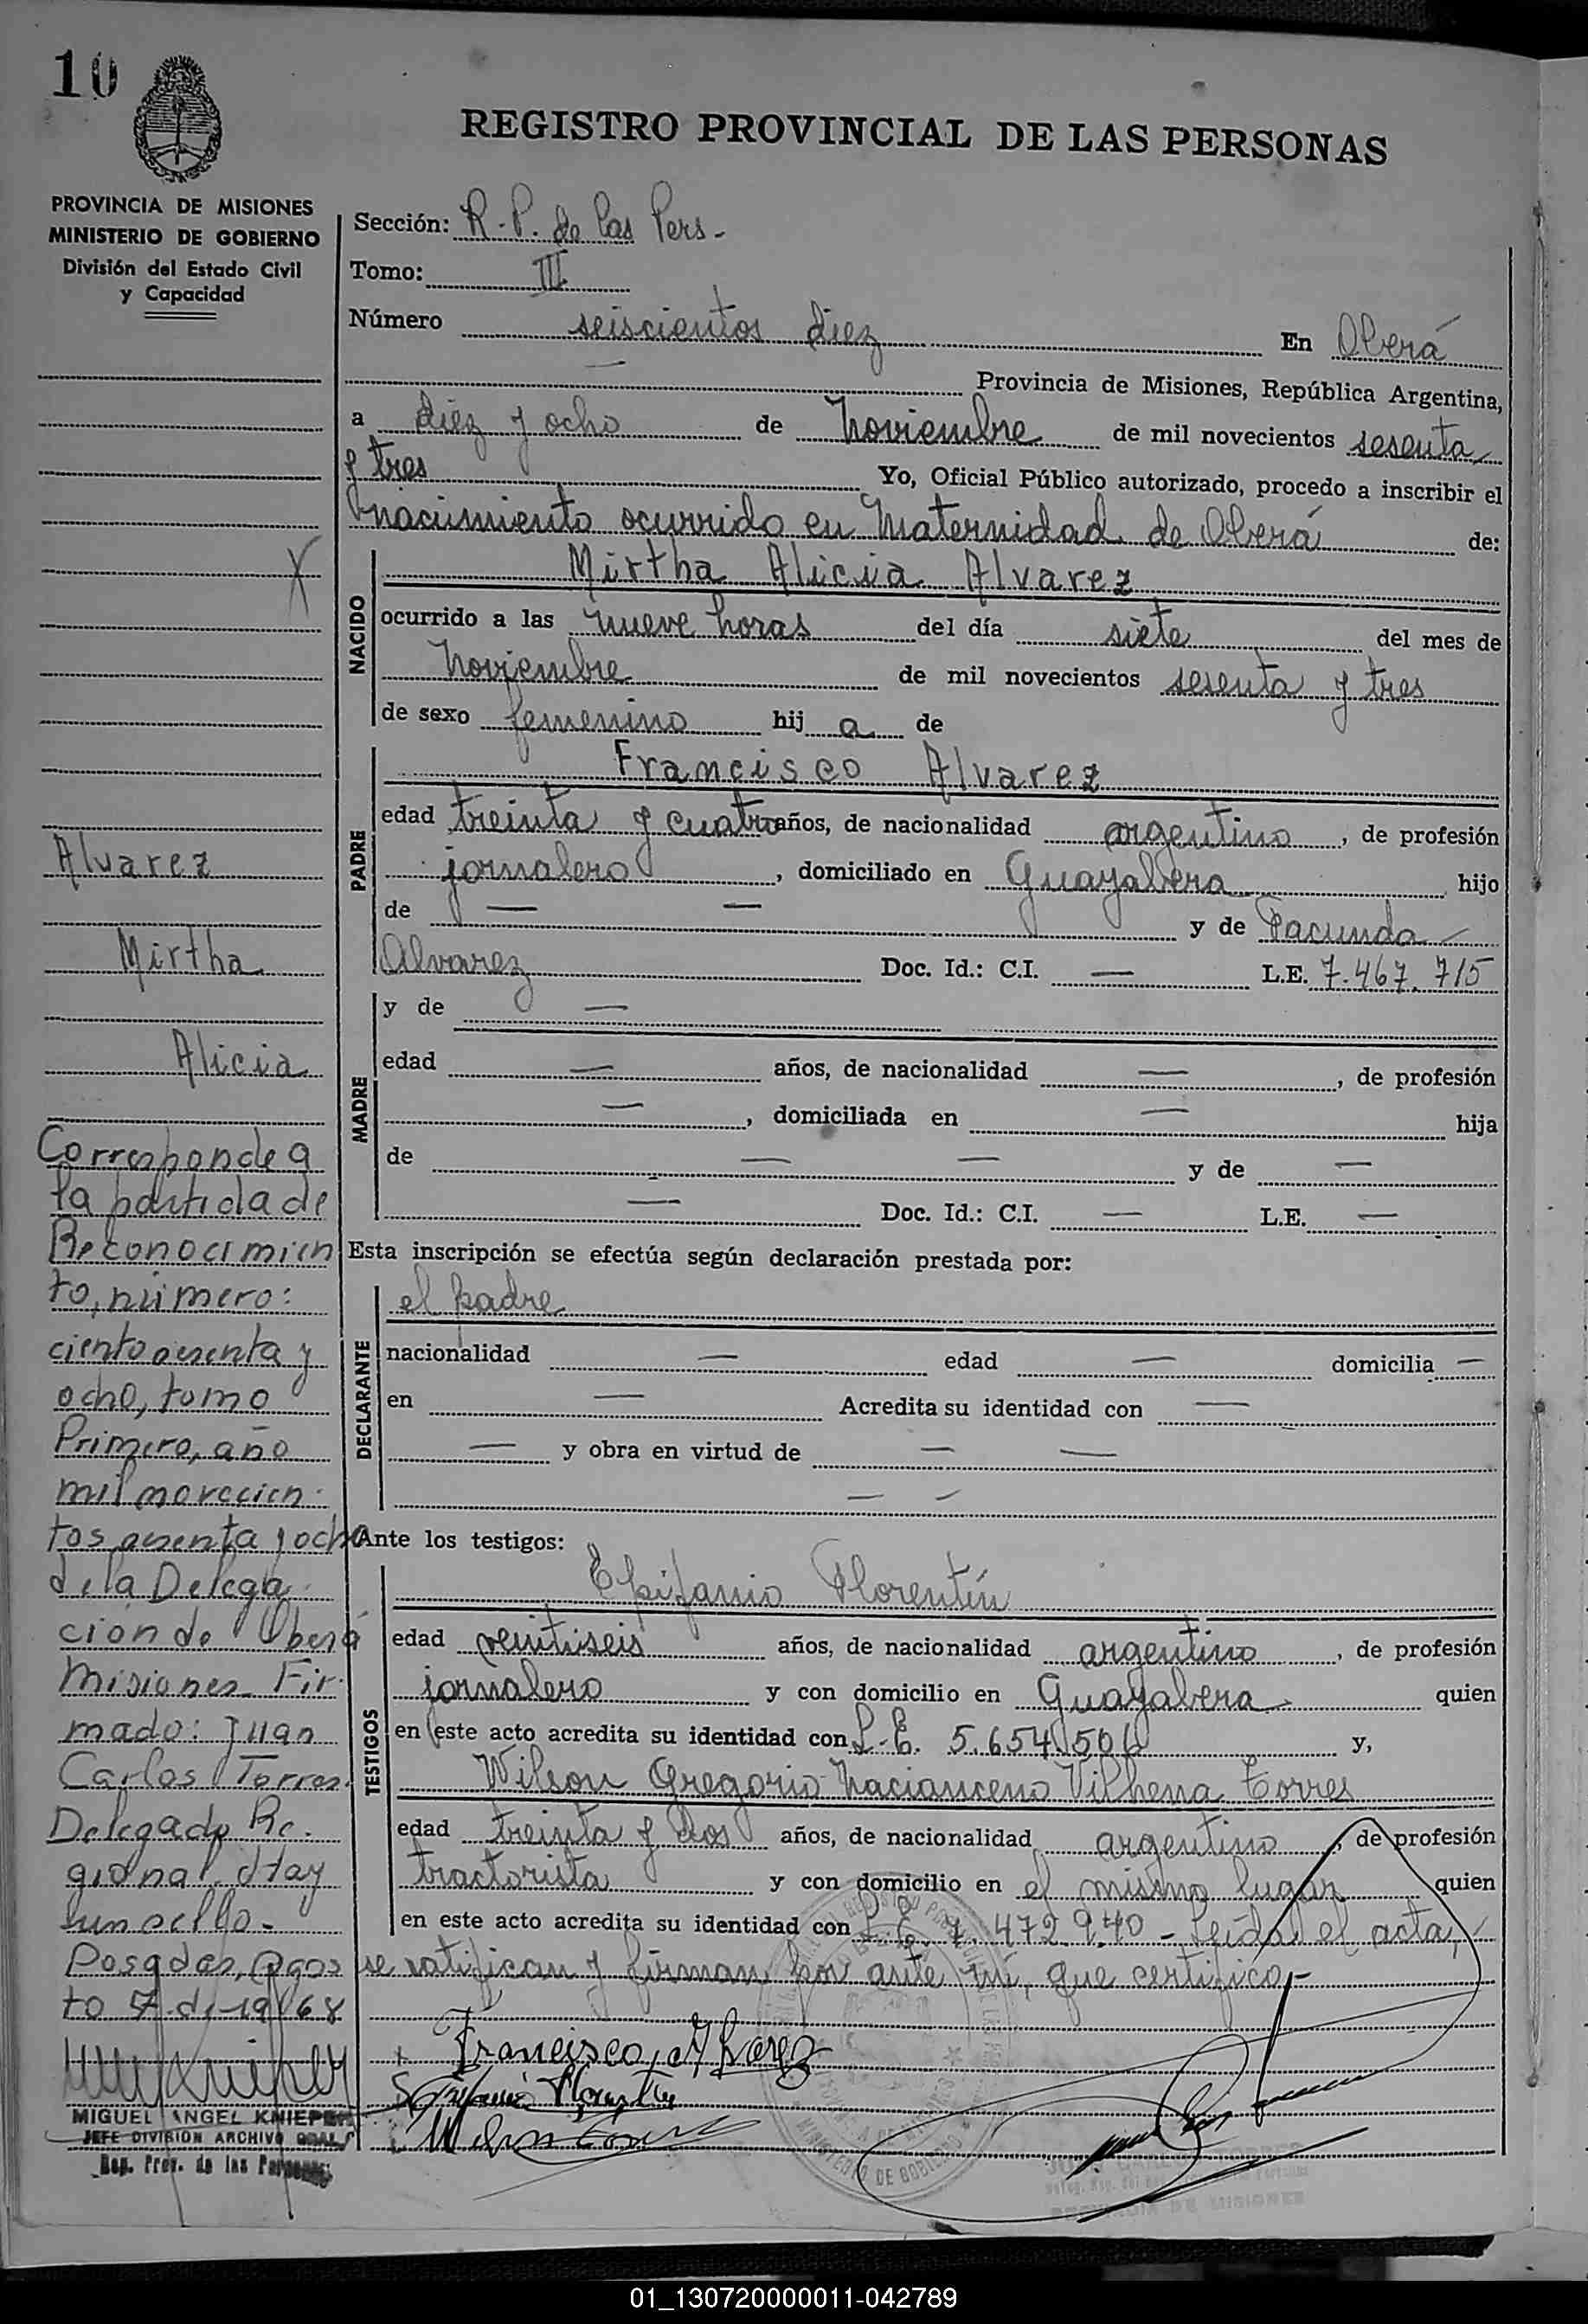 10
REGISTRO PROVINCIAL DE LAS PERSONAS
PROVINCIA DE MISIONES
MINISTERIO DE GOBIERNO
División del Estado Civil
y Capacidad
Sección: R.P. de las Pers.-
Tomo: III
Número seiscientos diez En Oberá
— Provincia de Misiones, República Argentina,
a diez y ocho de Noviembre de mil novecientos sesenta
y tres Yo, Oficial Público autorizado, procedo a inscribir el
nacimiento ocurrido en Maternidad de Oberá de:
NACIDO
Mirtha Alicia Alvarez
ocurrido a las nueve horas del día siete del mes de
Noviembre de mil novecientos sesenta y tres
de sexo femenino hij a de
PADRE
Francisco Alvarez
edad treinta y cuatro años, de nacionalidad argentino, de profesión
jornalero, domiciliado en Guayabera hijo
de — — y de Facunda
Alvarez Doc. Id.: C.I. — L.E. 7.467.715
MADRE
y de —
edad — años, de nacionalidad —, de profesión
—, domiciliada en — hija
de — — y de —
— Doc. Id.: C.I. — L.E. —
Esta inscripción se efectúa según declaración prestada por:
DECLARANTE
el padre
nacionalidad — edad — domicilia —
en — Acredita su identidad con —
— y obra en virtud de — —
— —
Ante los testigos:
TESTIGOS
Epifanio Florentín
edad veintiseis años, de nacionalidad argentino, de profesión
jornalero y con domicilio en Guayabera quien
en este acto acredita su identidad con L.E. 5.654.506 y,
Wilson Gregorio Nacianceno Vilhena Torres
edad treinta y dos años, de nacionalidad argentino, de profesión
tractorista y con domicilio en el mismo lugar quien
en este acto acredita su identidad con L.E. 7.472.940 - Leída el acta,
se ratifican y firman por ante mí, que certifico.-
Francisco Alvarez
Alvarez
Mirtha
Alicia
Corresponde a
la partida de
Reconocimien
to, número:
ciento sesenta y
ocho, tomo
Primero, año
mil novecien
tos sesenta y ocho
de la Delega
ción de Oberá
Misiones Fir
mado: Juan
Carlos Torres.
Delegado Re.
gional. Hay
un sello.-
Posadas, Agos
to 7 de 1968
MIGUEL ANGEL KNIEPER
JEFE DIVISION ARCHIVO GRAL
Reg. Prov. de las Personas
MINISTERIO DE GOBIERNO
01_130720000011-042789